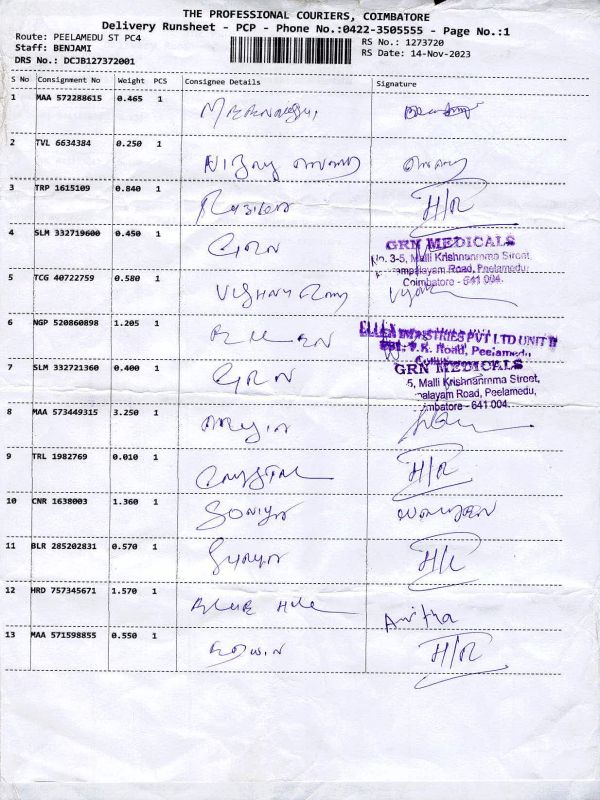 THE PROFESSIONAL COURIERS, COIMBATORE
Delivery Runsheet - PCP - Phone No.:0422-3505555 - Page No.:1
Route: PEELAMEDU ST PC4
RS No.: 1273720
Staff: BENJAMI
RS Date: 14-Nov-2023
DRS No.: DCJB127372001
S No Consignment No Weight PCS Consignee Details Signature
1 MAA 572288615 0.465 1
2 TVL 6634384 0.250 1
3 TRP 1615109 0.840 1 H/R
4 SLM 332719600 0.450 1 GRN
GRN MEDICALS
No. 3-5, Malli Krishnamma Street,
Road, Peelamedu,
Coimbatore - 641 004.
5 TCG 40722759 0.580 1
6 NGP 520860898 1.205 1
INDUSTRIES PVT LTD UNIT II
Road, Peelamedu,
7 SLM 332721360 0.400 1 GRN
GRN MEDICALS
-5, Malli Krishnamma Street,
palayam Road, Peelamedu,
mbatore - 641 004.
8 MAA 573449315 3.250 1
9 TRL 1982769 0.010 1 CRYSTAL H/R
10 CNR 1638003 1.360 1 SONIYA
11 BLR 285202831 0.570 1 H/R
12 HRD 757345671 1.570 1 BLUE Hill Anitha
13 MAA 571598855 0.550 1 EDWIN H/R